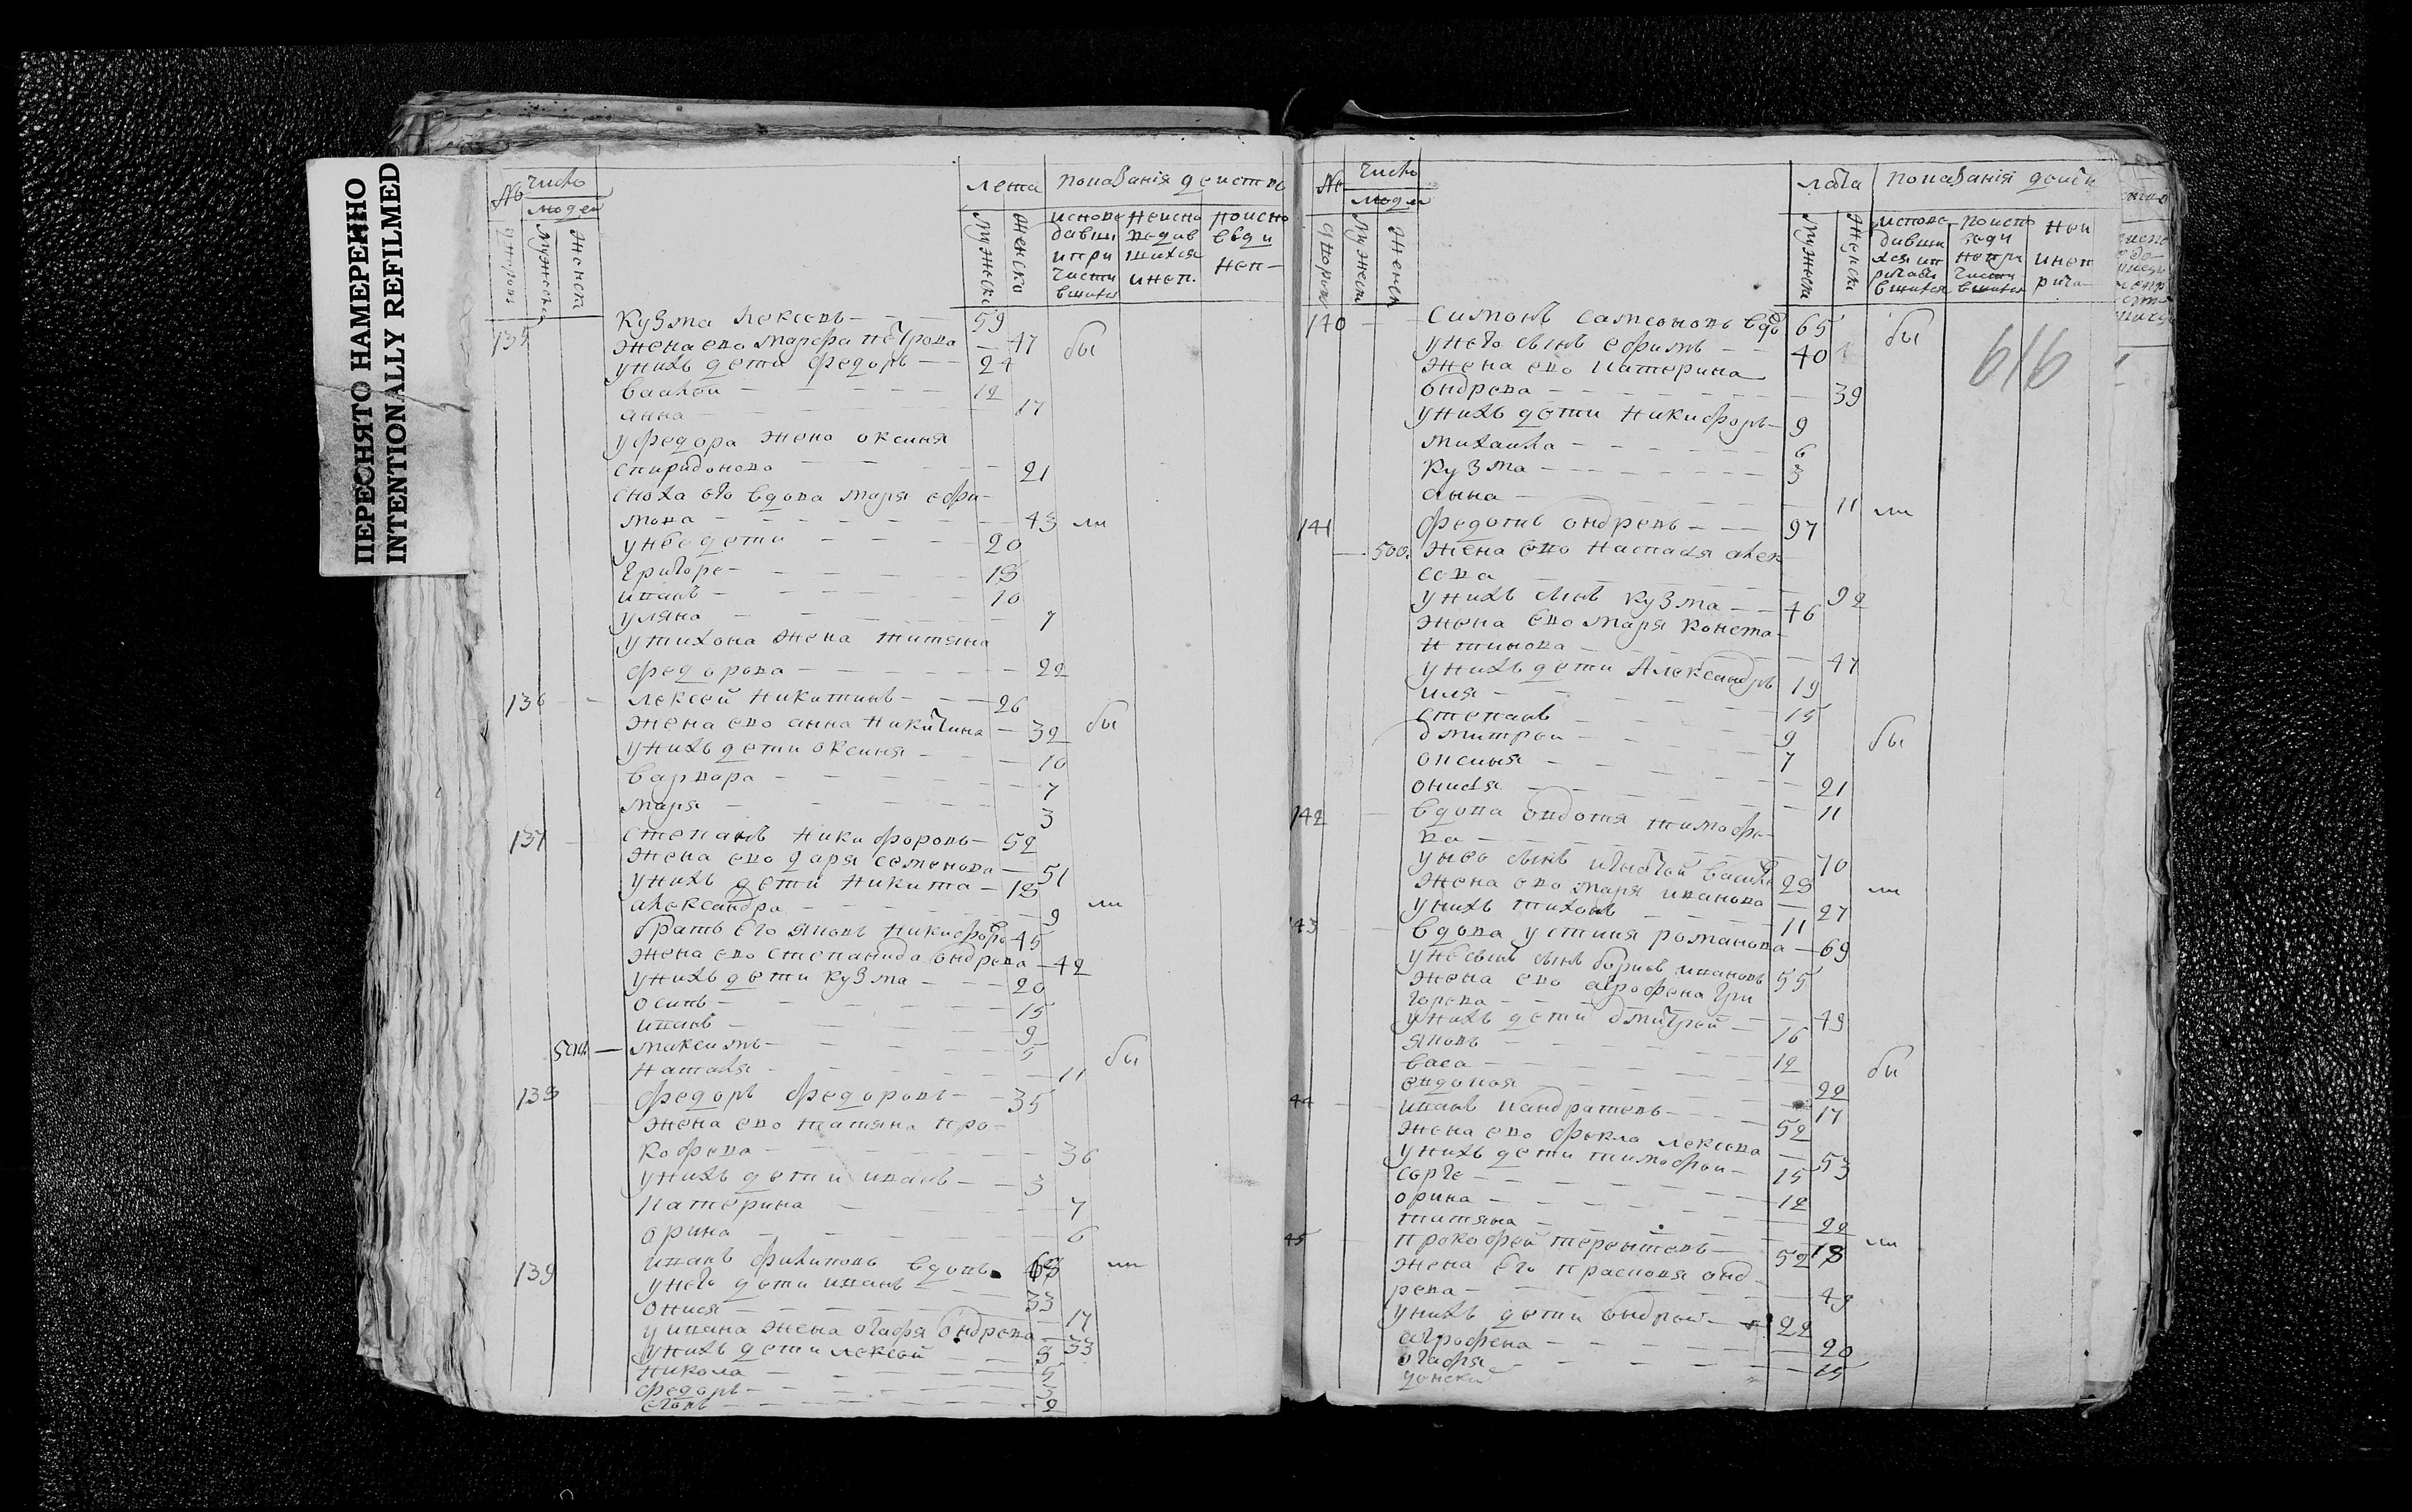 ПЕРЕСНЯТО НАМЕРЕННО
INTENTIONALLY REFILMED
№ число людей лета показания деиств
дворов мужеска женска мужеска женска
исповедавши и причистившихся
неисповедавшихся и неп.
поисповеди неп—
135 кузма лексевъ 59
жена ево марфа петрова 47 бы
унихъ дети федоръ 24
василей 12
анна 17
уфедора жена оксиня
спиридонова 21
сноха его вдова маря ефи-
мова 43 ли
унее дети 20
григоре 18
иванъ 10
уляна 7
утихона жена татяна
федорова 22
136 лексей никитинъ 26
жена ево анна никитина 32 бы
унихъ дети оксиня 10
варвара 7
маря 3
137 степанъ никифоровъ 52
жена ево даря семенова 51
унихъ дети никита 18
александра 9 ли
братъ его яковъ никифоро 45
жена ево степанида ондрева 42
унихъ дети кузма 20
осипъ 15
иванъ 9
максимъ 5
наталя 11 бы
138 федоръ федоровъ 35
жена ево татяна про-
кофева 36
унихъ дети иванъ 3
катерина 7
орина 6
139 иванъ филиповъ вдовъ ли
унего дети иванъ 33
онися 17
уивана жена огафя ондрева 33
унихъ дети лексей 8
никола 5
федоръ 3
егоръ 2
№ число людей лета показания деист
дворов мужеска женска мужеска женска
140 симонъ самсоновъ вдо 65 бы
унего сынъ ефимъ 40
жена ево катерина
ондрева 39
унихъ дети никифоръ 9
михаила 6
кузма 3
анна 11 ли
616
141 федотъ ондревъ 97
500. жена ево настася алек
сева 92
унихъ сынъ кузма 46
жена ево маря конста-
нтинова 47
унихъ дети александръ 19
иля 15
степанъ 9
дмитреи 7 бы
оксиня 21
онися 11
142 вдова овдотя тимофе-
ва 70
унее сынъ игнатей василе 28
жена ево маря иванова 27 ли
унихъ тихонъ 11
143 вдова устиня романова 69
сынъ борисъ ивановъ 55
жена ево агрофена гри
горева 49
унихъ дети дмитрей 16
яковъ 12
васа 22 бы
овдотя 17
44 иванъ кандратевъ 52
жена ево фекла лексева 53
унихъ дети тимофеи 15
серге 12
орина 22
татяна 18
45 прокофей терентевъ 52 ли
жена его прасковя онд-
рева 49
унихъ дети ондреи 22
агрофена 20
огафя 15